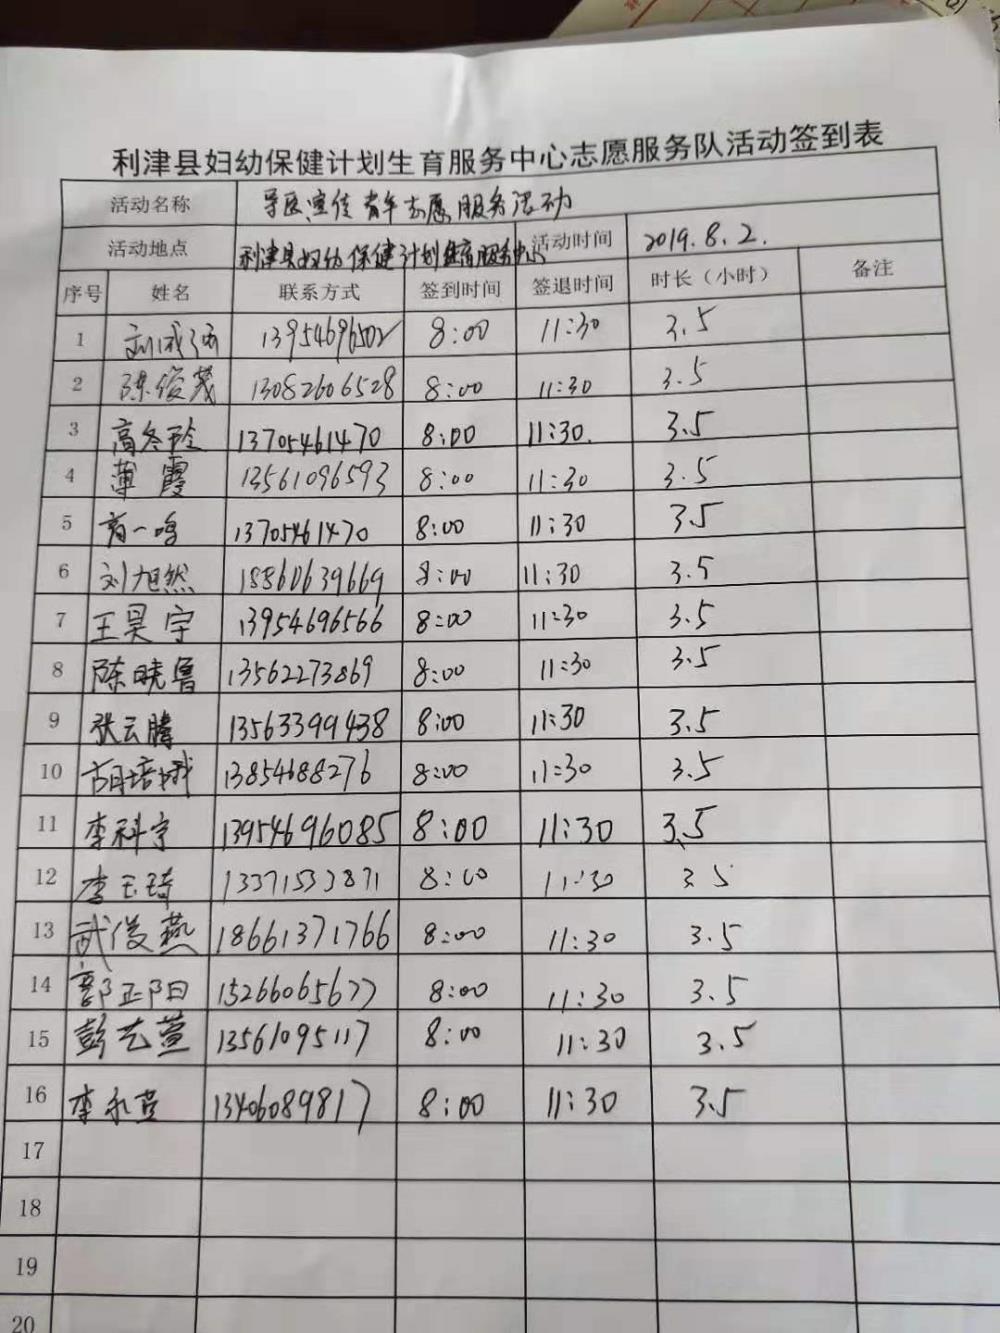 利津县妇幼保健计划生育服务中心志愿服务队活动签到表
活动名称 导医宣传青年志愿服务活动
活动地点 利津县妇幼保健计划生育服务中心 活动时间 2019.8.2.
序号 姓名 联系方式 签到时间 签退时间 时长（小时） 备注
1 13954696502 8:00 11:30 3.5
2 陈俊茂 13082606528 8:00 11:30 3.5
3 高冬玲 13705461470 8:00 11:30. 3.5
4 薄霞 13561096593 8:00 11:30 3.5
5 一鸣 13705461470 8:00 11:30 3.5
6 刘旭然 18860639669 8:00 11:30 3.5
7 王昊宇 13954696566 8:00 11:30 3.5
8 陈晓鲁 13562273869 8:00 11:30 3.5
9 张云腾 13563399438 8:00 11:30 3.5
10 胡培 13854688276 8:00 11:30 3.5
11 李科宇 13954696085 8:00 11:30 3.5
12 李玉琦 13371533871 8:00 11:30 3.5
13 武俊燕 18661371766 8:00 11:30 3.5
14 郭正阳 15266065677 8:00 11:30 3.5
15 彭艺萱 13561095117 8:00 11:30 3.5
16 李永萱 13406089817 8:00 11:30 3.5
17
18
19
20